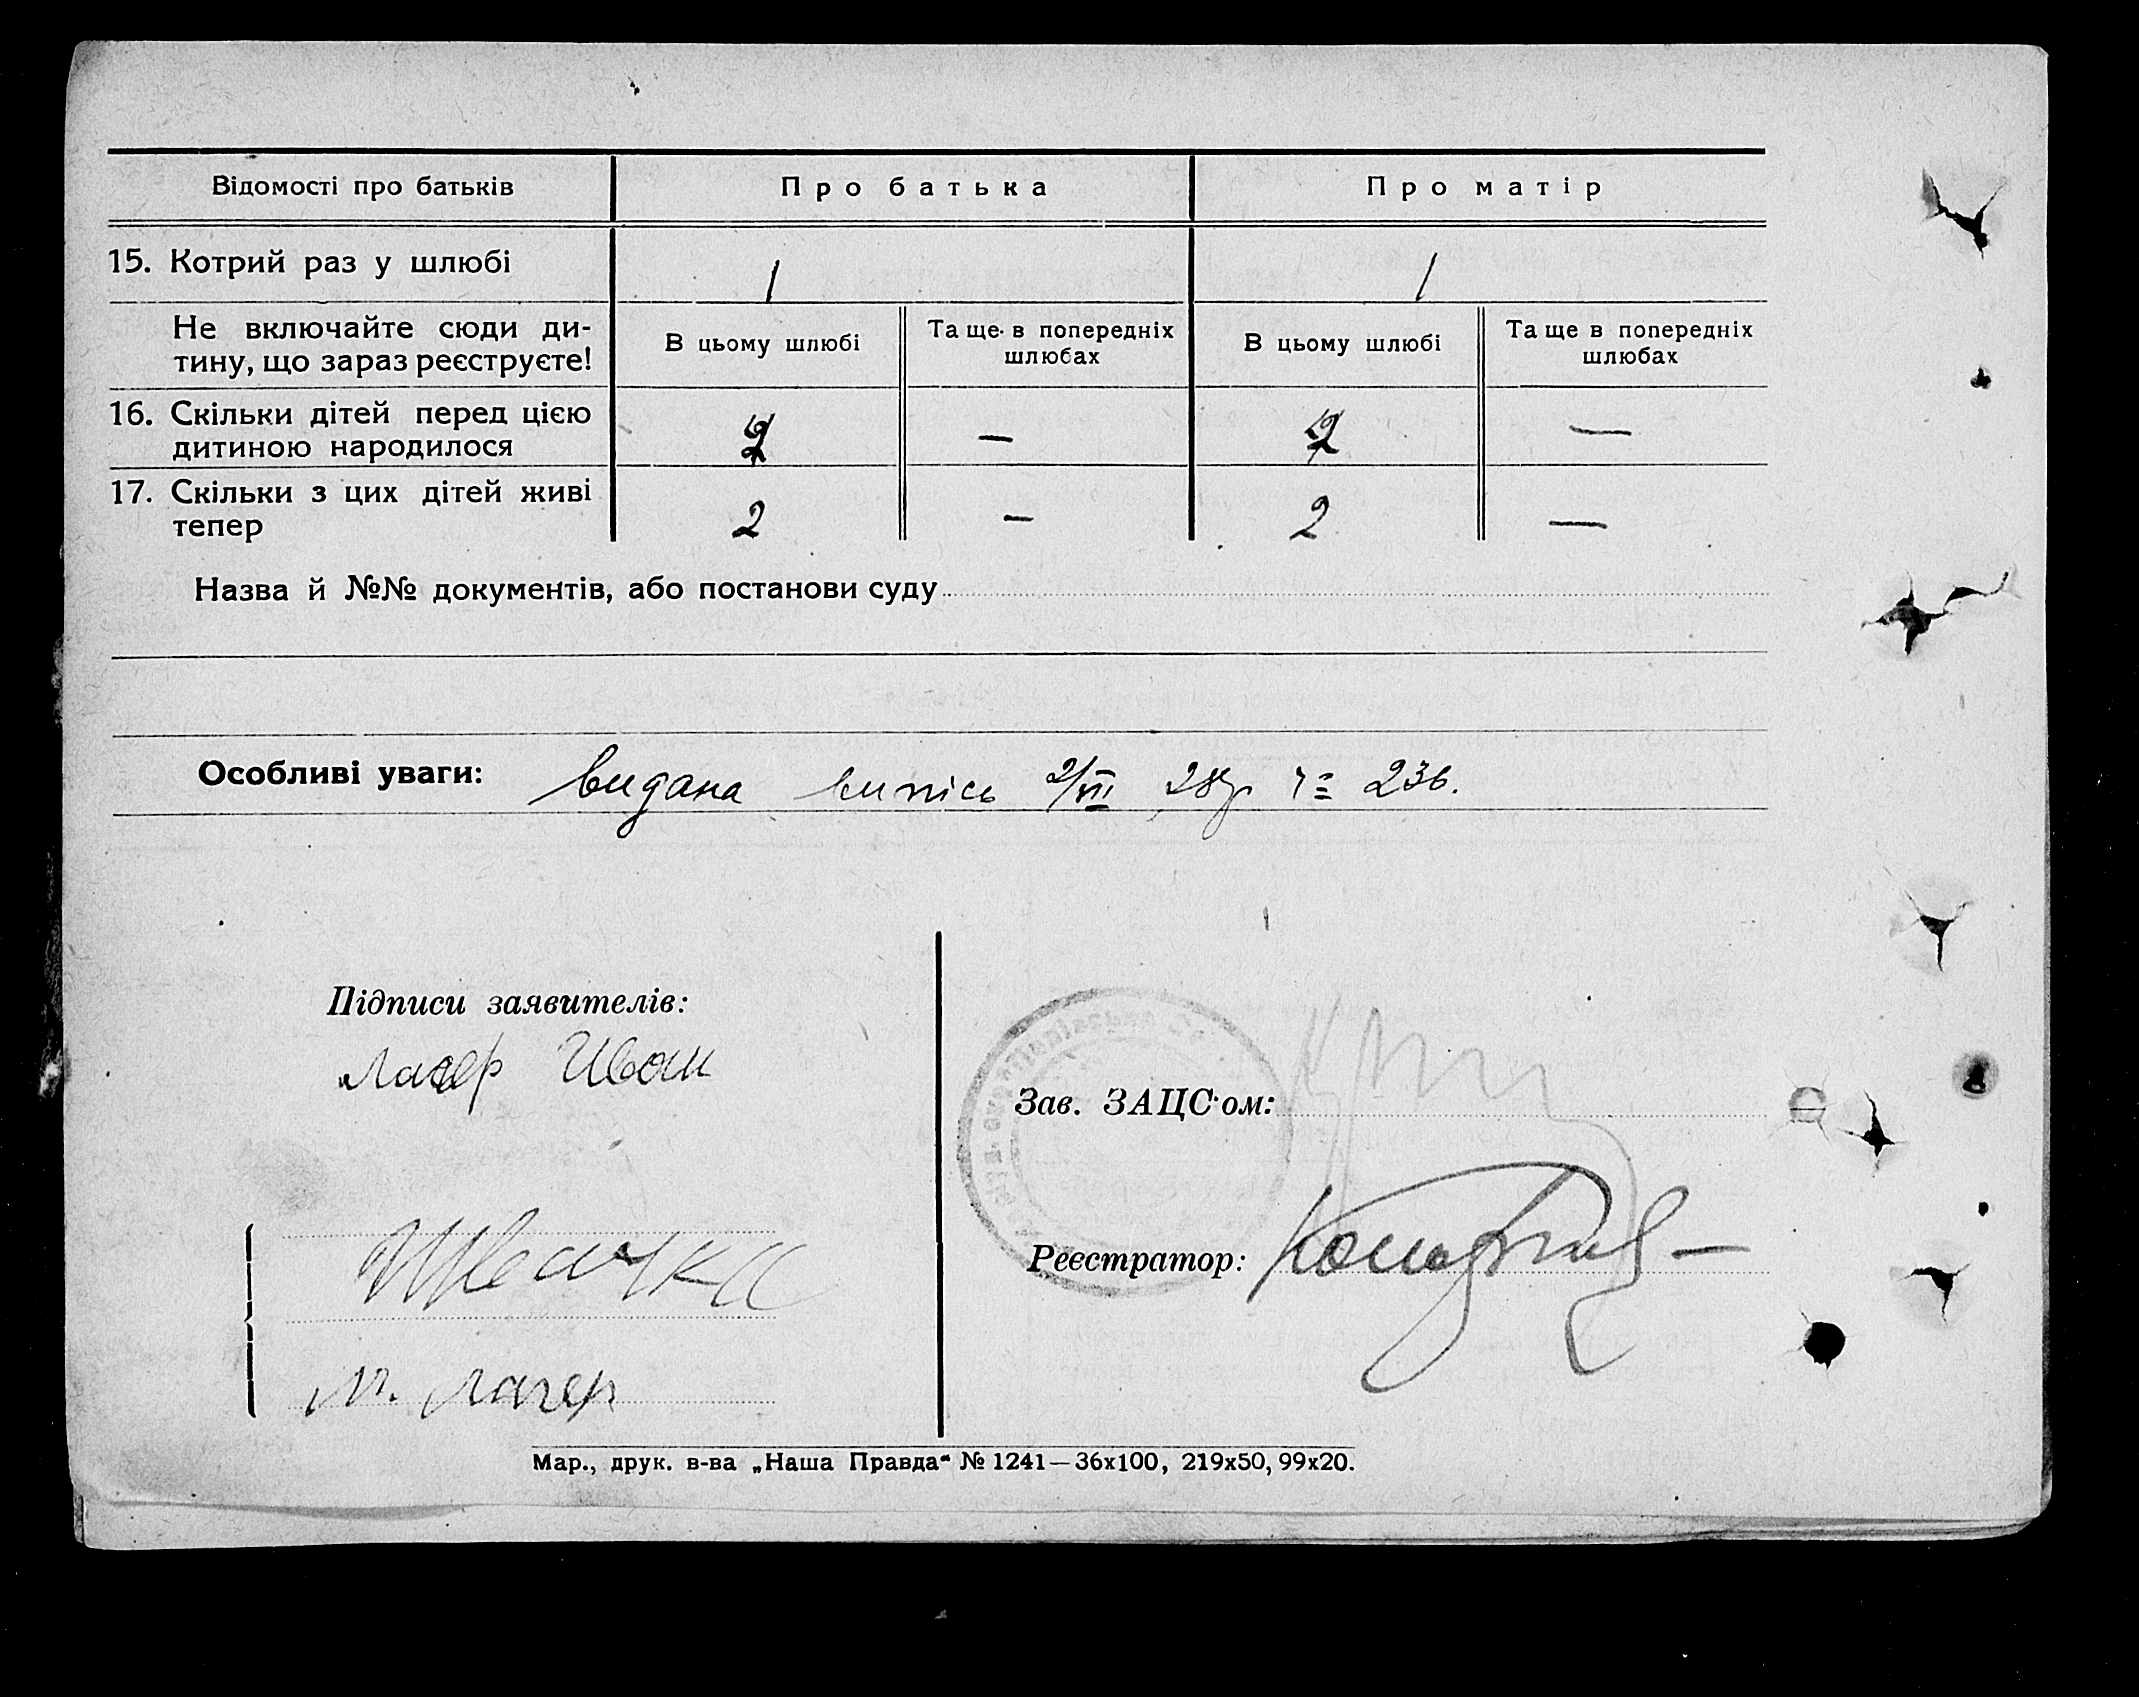 Відомості про батьків Про батька Про матір
15. Котрий раз у шлюбі 1 1
Не включайте сюди ди-
тину, що зараз реєструєте!
В цьому шлюбі
Та ще в попередніх
шлюбах
В цьому шлюбі
Та ще в попередніх
шлюбах
16. Скільки дітей перед цією
дитиною народилося
— —
17. Скільки з цих дітей живі
тепер
2 — 2 —
Назва й №№ документів, або постанови суду
Особливі уваги: видана випісь 2/VII 28р. 236.
Підписи заявителів:
Лагер Иван
М. Лагер
Зав. ЗАЦС'ом:
Реєстратор:
Мар., друк. в-ва „Наша Правда“ № 1241—36х100, 219х50, 99х20.